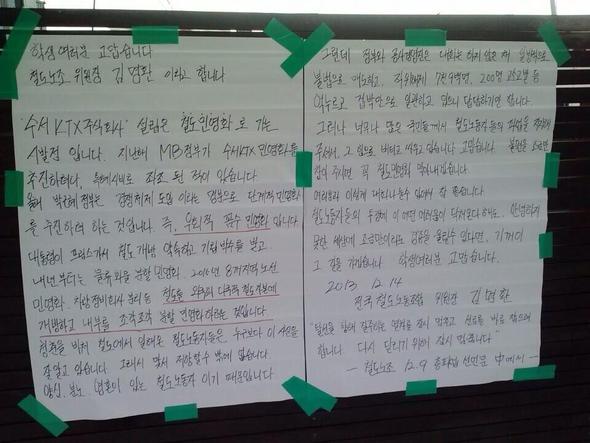 학생여러분 고맙습니다
철도노조 위원장 김명환 이라고 합니다
"수서KTX주식회사" 설립은 철도민영화로 가는
시발점 입니다. 지난해 MB정부가 수서KTX 민영화를
추진하려다, 좌초 된 적이 있습니다.
올해 박근혜 정부는 경쟁체제 도입 이라는 명분으로 단계적 민영화
를 추진하려 하는 것입니다. 즉, 우회적 꼼수 민영화 입니다
대통령이 프랑스가서 철도개방 약속하고 기립박수를 받고
내년부터는 물류화물 분할 민영화, 2016년 8개지방노선
민영화 차량정비회사 분리 등 철도를
개방하고 내부를 조각조각 분할 민영화 하려는 것입니다
청춘을 바쳐 철도에서 일해온 철도노동자들은 누구보다 이 사실을
잘 알고 있습니다. 그래서 맞서 저항할 수 밖에 없습니다
양심, 분노, 영혼이 있는 철도노동자 이기 때문입니다.
그런데 정부와 공사경영진은 대화는 하지 않은 채 일방적으로
불법으로 매도하고, 직위해제 7천9백명, 200명 고소고발 등
억누르고 겁박만으로 일관하고 있으니 답답하기만 합니다.
그러나 너무나 많은 국민들께서 철도노동자들의 파업을 지지해
주셔서, 그 힘으로 버티고 싸우고 있습니다 고맙습니다. 불편을
참아 주시면 꼭 철도민영화 막아내겠습니다.
여러분과 이렇게 대화 나눌수 있어서 참 좋습니다
철도노동자들의 투쟁이 이 어떤 여러분이 안녕하지
못한 세상에 조금만이라도 감동을 울릴수 있다면, 기꺼이
그 길을 가겠습니다. 학생여러분 고맙습니다.
2013. 12. 14
전국철도노동조합 위원장 김명환
"탈선을 향해 질주하는 열차를 잠시 멈추고 선로를 바로 잡으려
합니다. 다시 달리기 위해 잠시 멈춥니다"
- 철도노조 12.9 총파업 선언문 中에서 -